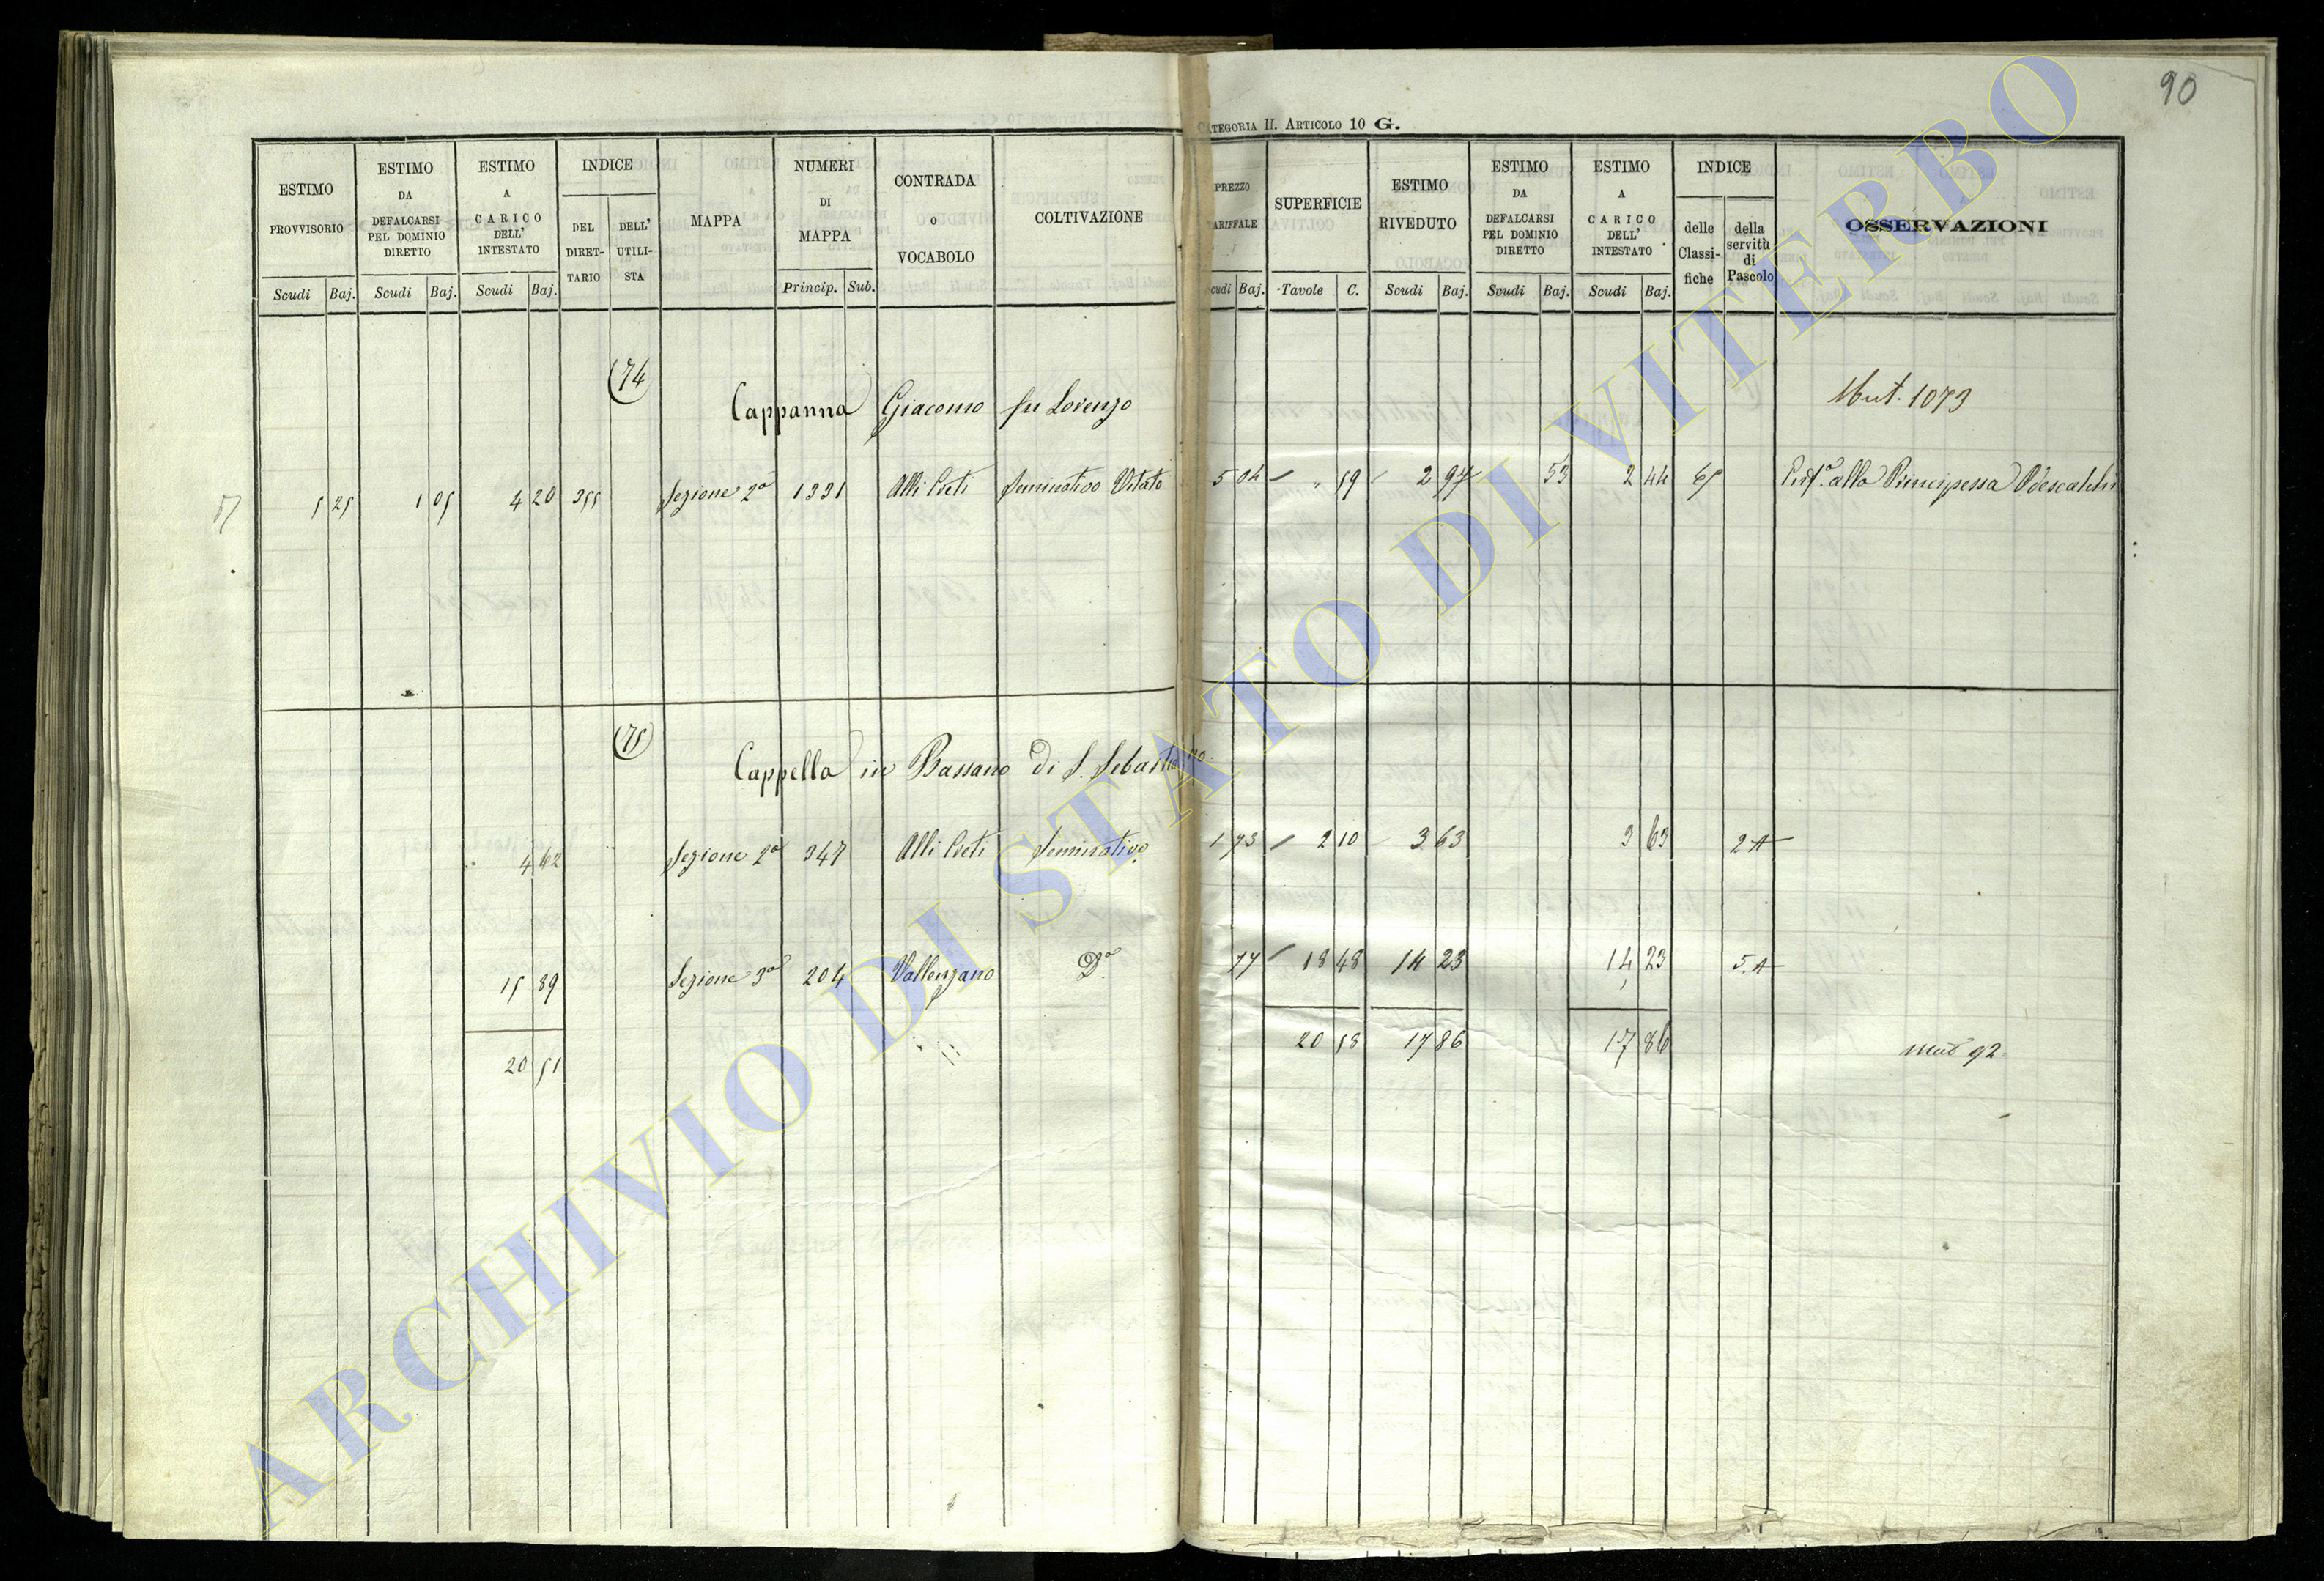 90
CATEGORIA II. ARTICOLO 10 G.
ESTIMO PROVVISORIO
ESTIMO DA DEFALCARSI PEL DOMINIO DIRETTO
ESTIMO A CARICO DELL' INTESTATO
INDICE
DEL DIRETTARIO
DELL' UTILISTA
MAPPA
NUMERI DI MAPPA
CONTRADA o VOCABOLO
COLTIVAZIONE
PREZZO TARIFFALE
SUPERFICIE
ESTIMO RIVEDUTO
ESTIMO DA DEFALCARSI PEL DOMINIO DIRETTO
ESTIMO A CARICO DELL' INTESTATO
INDICE
delle Classifiche
della servitù di Pascolo
OSSERVAZIONI
Scudi Baj. Scudi Baj. Scudi Baj. Princip. Sub. Scudi Baj. Tavole C. Scudi Baj. Scudi Baj. Scudi Baj.
74
Cappanna Giacomo fu Lorenzo
Mut. 1073
5 25 1 05 4 20 355 Sezione 2a 1331 Alli Creti Seminativo Vitato 5 04 " 59 2 97 53 2 44 65 Enf.a alla Principessa Odescalchi
75
Cappella in Bassano di S. Sebastiano
4 62 Sezione 2a 347 Alli Creti Seminativo 1 73 2 10 3 63 3 63 2 A
15 89 Sezione 3a 204 Vallenzano Do 77 18 48 14 23 14 23 5 A
20 51 20 58 17 86 17 86
Mut 92
ARCHIVIO DI STATO DI VITERBO